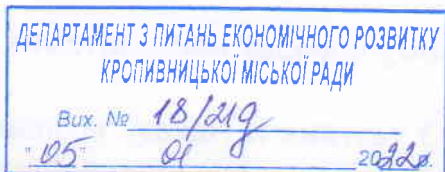 ДЕПАРТАМЕНТ З ПИТАНЬ ЕКОНОМІЧНОГО РОЗВИТКУ
КРОПИВНИЦЬКОЇ МІСЬКОЇ РАДИ
Вих. № 18/21д
"05" 01 2022р.